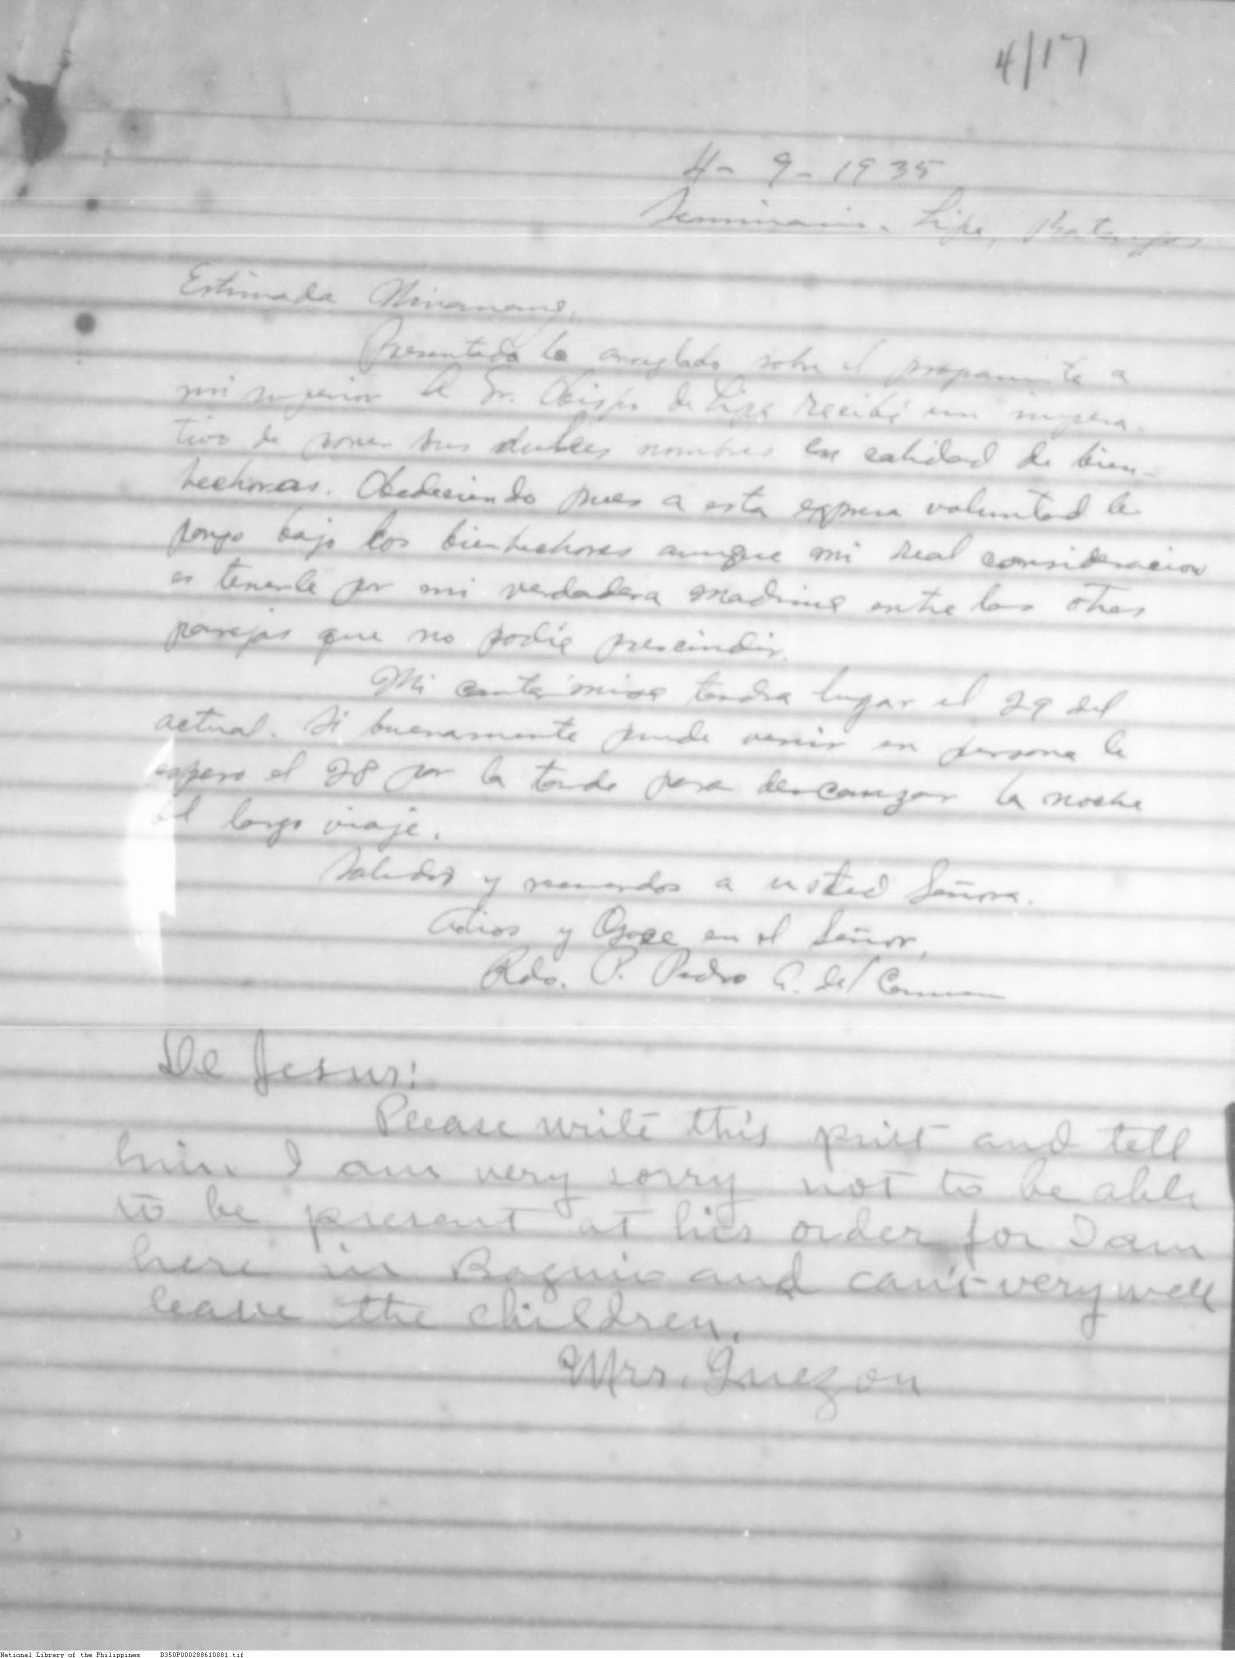 4/17
4-9-1935
Seminario, Lipa, Batangas
Estimada Ninamang,
Presentado lo arreglado sobre el a
mi superior el Sr. Obispo de Lipa recibí un impera-
tivo de poner sus dulces nombres en calidad de bien-
hechoras. Obedeciendo pues a esta expresa voluntad le
pongo bajo los bienhechores aunque mi real consideracion
es tenerle por mi verdadera madrina entre las otras
parejas que no podia prescindir.
Mi canta misa tendra lugar el 29 del
actual. Si buenamente puede venir en persona le
espero el 28 por la tarde para descanzar la noche
del largo viaje.
Saludos y recuerdos a usted Señora.
Adios y Goce en el Señor,
Rdo. P. Pedro G. del Carmen
De Jesus:
Please write this priest and tell
him I am very sorry not to be able
to be present at his order for I am
here in Baguio and can't very well
leave the children.
Mrs. Quezon
National Library of the Philippines D350P000288610881.tif